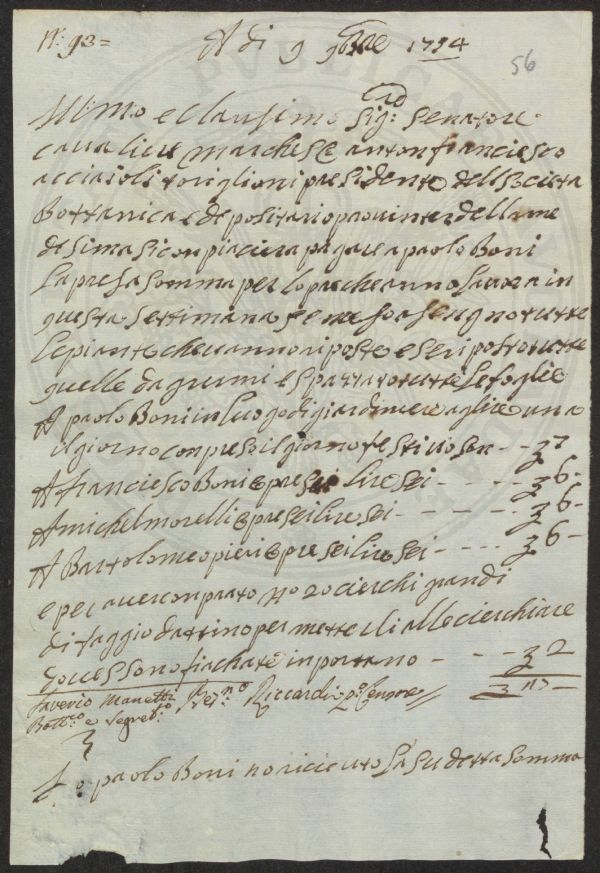 N.° 93 =
A di 9 9bre 1754
56
Ill:mo e Clarisimo Sig:re Senatore
cavaliere marchese antonfranciesco
acciaioli toriglioni presidente dell Societa
Bottanica e depositario provinte della me
desima Si conpiaciera pagare a paolo Boni
la presa Somma per lopre che anno lavora in
questa Settimana
le piante che vanno riposte e Seriposto tutte
quelle dagrumi e Spazzato tutte le foglie
A paolo Boni in luogo di giardiniere a glire una
il giorno conpreso il giorno festivo son - - 7
A franciesco Boni opre Sei lire Sei - - - - 6 -
A michel morelli opre Sei lire Sei - - - - - 6 -
A Bartolomeo pieri opre Sei lire Sei - - - - 6 -
e per aver conprato n° 20 cierchi grandi
di faggio dattino per metterli alle cierchiare
Sono fiachate in portano - - - 2
Saverio Manetti
Bott:co e Segret:rio
Riccardi Censore
27 -
Io paolo Boni no riceuto la Su detta Somma